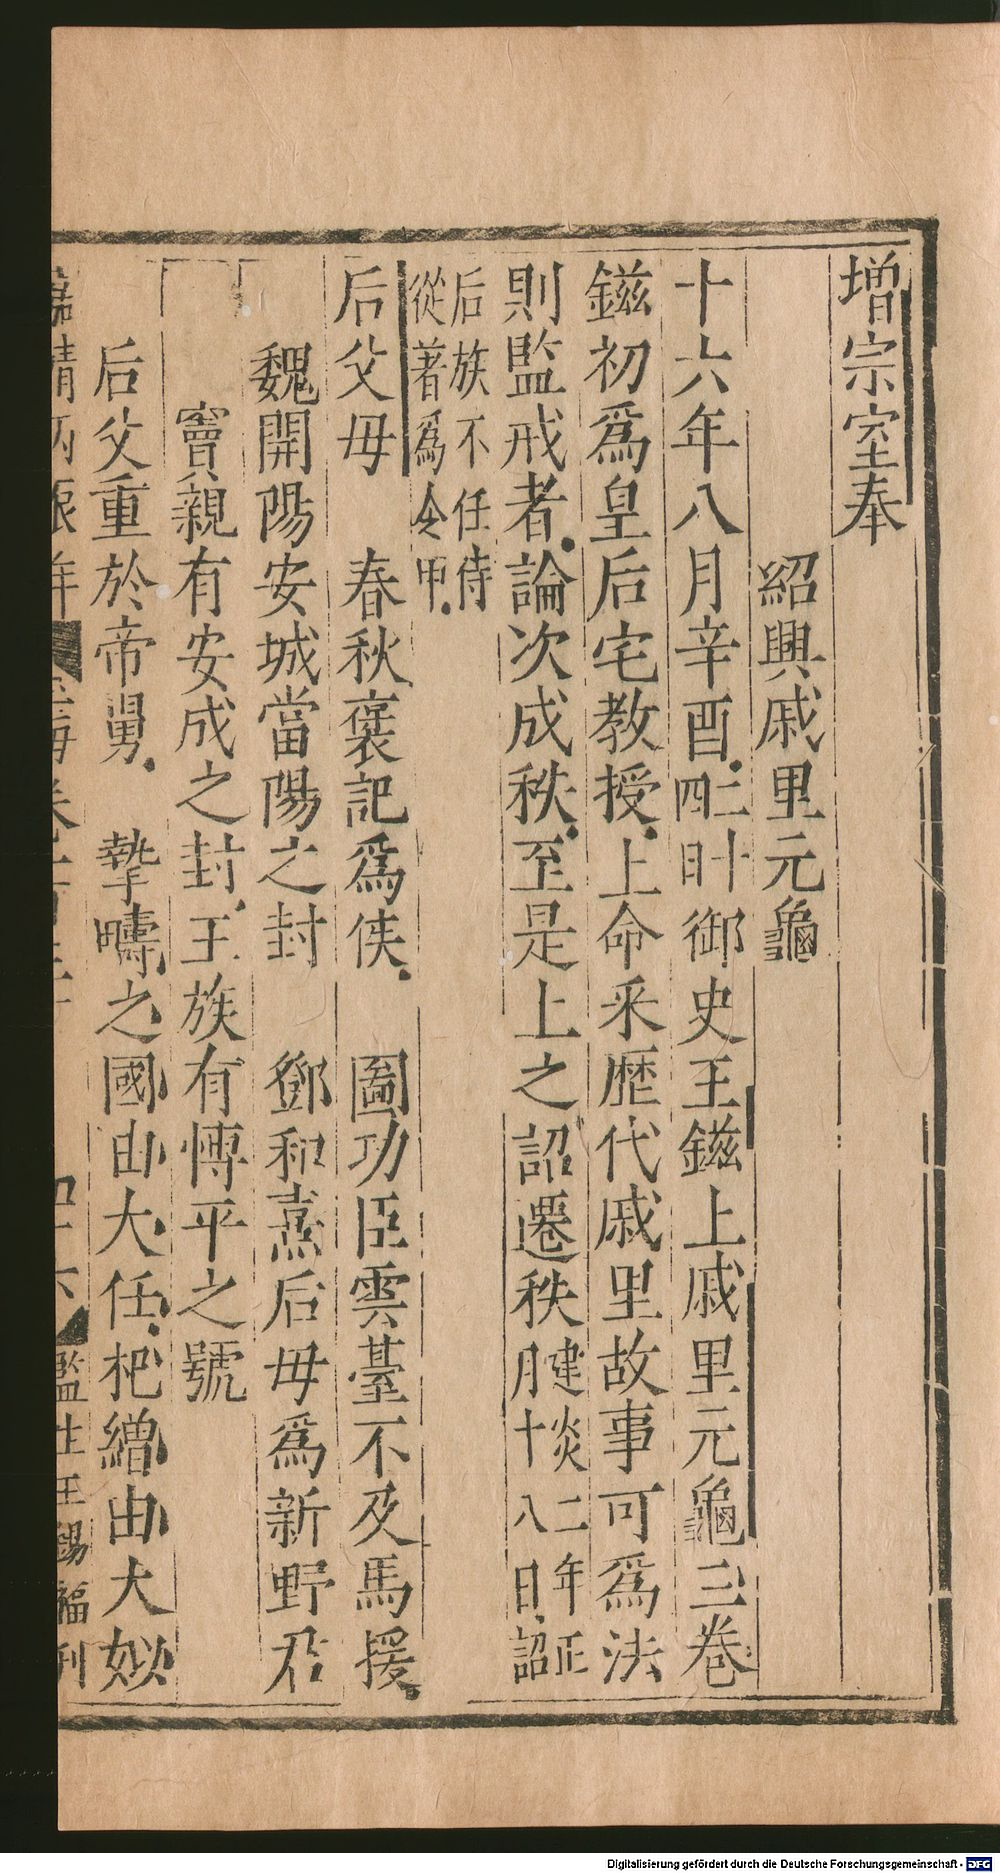 增宗室奉
紹興戚里元龜
十六年八月辛酉二十四日御史王鎡上戚里元龜三卷
鎡初爲皇后宅教授上命采歷代戚里故事可爲法
則監戒者論次成秩至是上之詔遷秩建炎二年正月十八日詔
后族不任侍從著爲令甲
后父母　春秋褒記爲侯　圖功臣雲臺不及馬援
魏開陽安城當陽之封　鄧和熹后母爲新野君
竇親有安成之封王族有慱平之號
后父重於帝舅　摯疇之國由大任杞繒由大姒
嘉靖丙辰年　玉海卷　四十六　監生王錫福刊
Digitalisierung gefördert durch die Deutsche Forschungsgemeinschaft - DFG